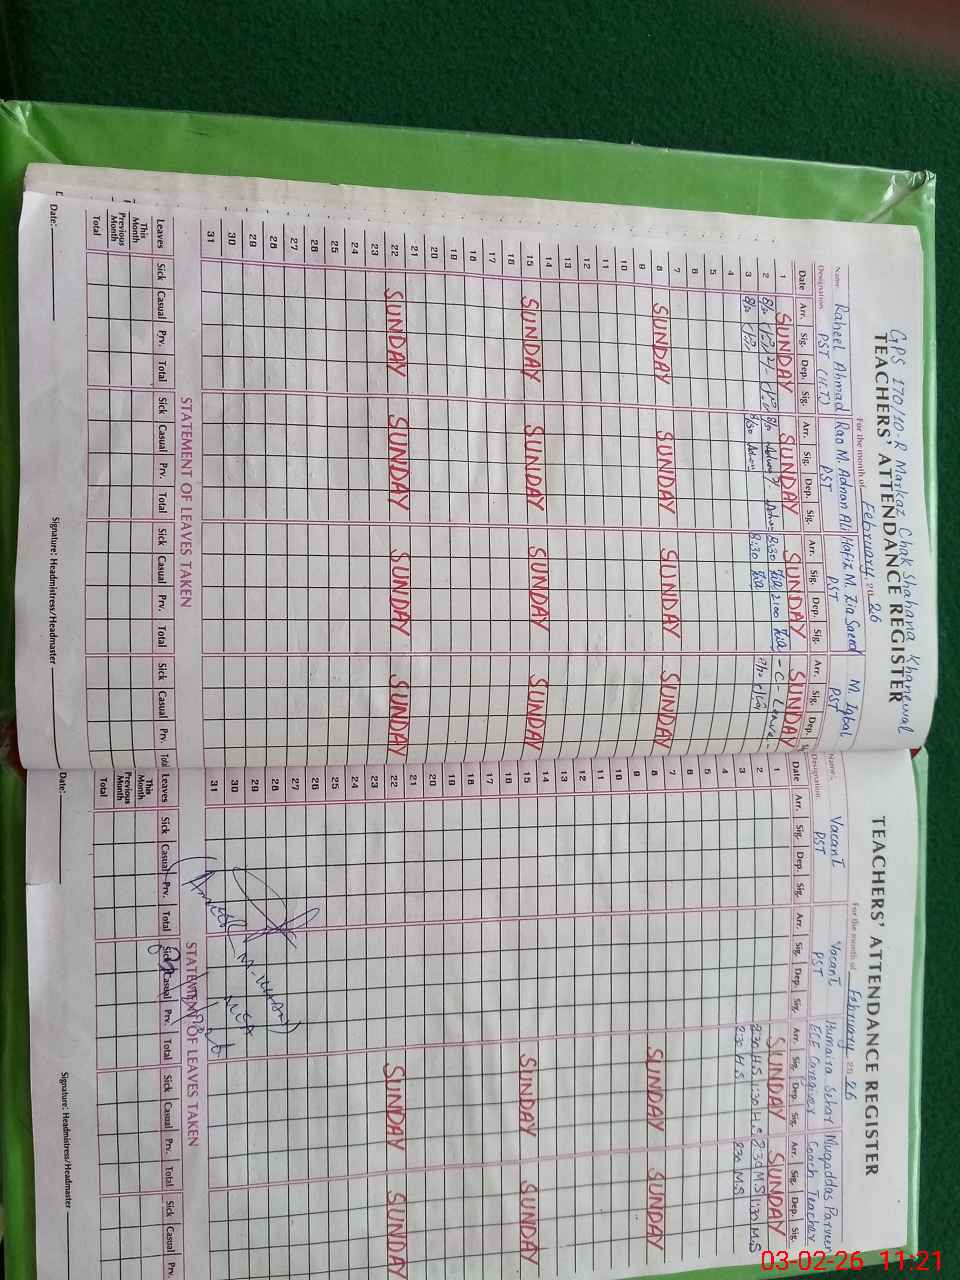 GPS 170/10-R Markaz Chak Shahana Khanewal
TEACHERS' ATTENDANCE REGISTER
For the month of February 2026
Name: Raheel Ahmad Rao M. Adnan Ali Hafiz M. Zia Saeed M. Iqbal
Designation PST (H.T) PST PST PST
Date Arr. Sig. Dep. Sig. Arr. Sig. Dep. Sig. Arr. Sig. Dep. Sig. Arr. Sig. Dep.
1 SUNDAY SUNDAY SUNDAY SUNDAY
2 8:30 Zia 2:00 Zia - C - Leave -
3 8:30 Zia
4
5
6
7
8 SUNDAY SUNDAY SUNDAY SUNDAY
9
10
11
12
13
14
15 SUNDAY SUNDAY SUNDAY SUNDAY
16
17
18
19
20
21
22 SUNDAY SUNDAY SUNDAY SUNDAY
23
24
25
26
27
28
29
30
31
STATEMENT OF LEAVES TAKEN
Leaves Sick Casual Prv. Total Sick Casual Prv. Total Sick Casual Prv. Total Sick Casual Prv.
This Month
Previous Month
Total
Date: Signature: Headmistress/Headmaster
TEACHERS' ATTENDANCE REGISTER
For the month of February 2026
Name:- Vacant Vacant Humaira Sehar Muqaddas Parveen
Designation PST PST ECE Caregiver Coach Teacher
Date Arr. Sig. Dep. Sig. Arr. Sig. Dep. Sig. Arr. Sig. Dep. Sig. Arr. Sig. Dep. Sig.
1 SUNDAY SUNDAY
2 8:30 H.S 1:30 H.S 8:30 M.S 1:30 M.S
3 8:30 H.S 8:30 M.S
4
5
6
7
8 SUNDAY SUNDAY
9
10
11
12
13
14
15 SUNDAY SUNDAY
16
17
18
19
20
21
22 SUNDAY SUNDAY
23
24
25
26
27
28
29
30
31
MEA
STATEMENT OF LEAVES TAKEN
Leaves Sick Casual Prv. Total Sick Casual Prv. Total Sick Casual Prv. Total Sick Casual Prv.
This Month
Previous Month
Total
Date: Signature: Headmistress/Headmaster
03-02-26 11:21